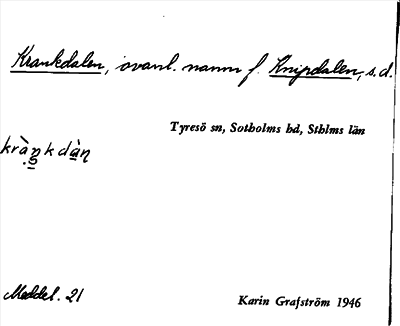 Krankdalen, ovanl. namn f. Knipdalen, s.d.
Tyresö sn, Sotholms hd, Sthlms län
kràŋkdàn
Meddel. 21
Karin Grafström 1946